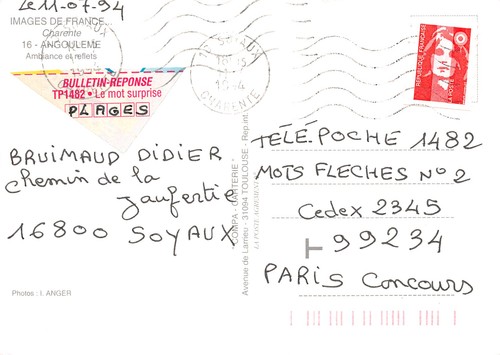 Le 11-07-94
IMAGES DE FRANCE...
Charente
16 - ANGOULEME
Ambiance et reflets
BULLETIN-RÉPONSE
TP1482 • Le mot surprise
PLAGES
BRUIMAUD DIDIER
Chemin de la
Jaufertie
16800 SOYAUX
Photos : I. ANGER
"COMPA - CARTERIE"
Avenue de Larrieu - 31094 TOULOUSE - Rep. int.
16 SOYAUX
CHARENTE
RÉPUBLIQUE FRANÇAISE
LA POSTE
TÉLÉ.POCHE 1482
MOTS FLECHES N° 2
Cedex 2345
99234
PARIS Concours